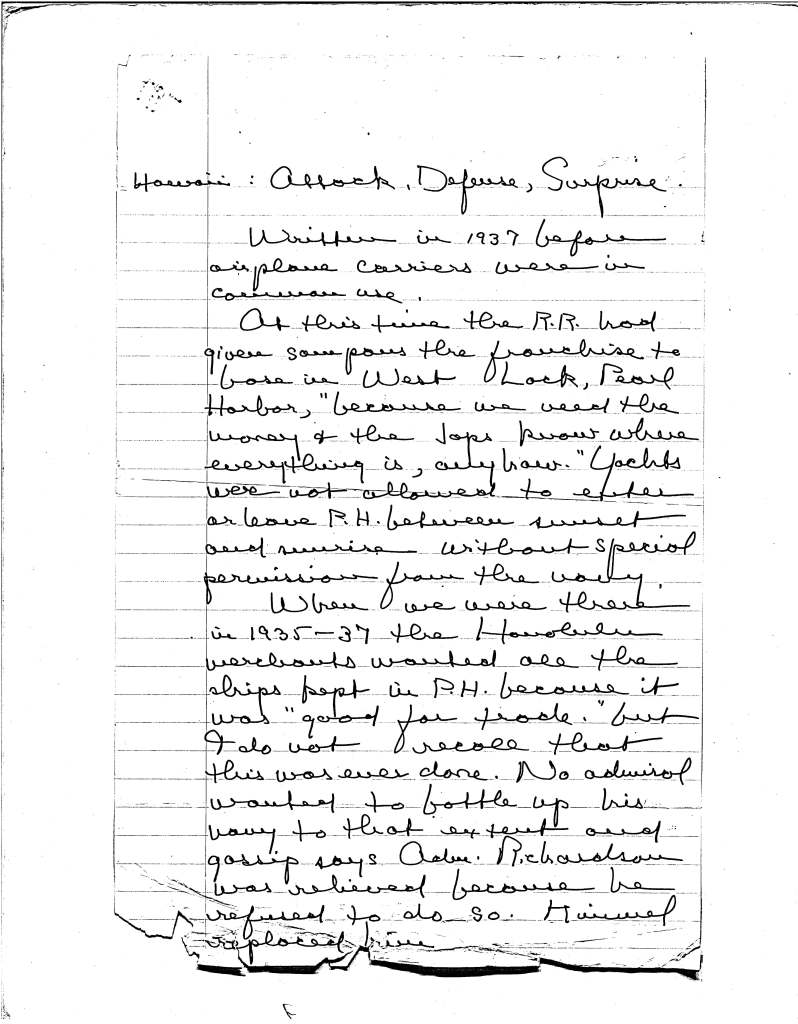 Hawaii : Attack, Defense, Surprise.
Written in 1937 before
airplane carriers were in
common use.
At this time the R.R. had
given sampans the franchise to
base in West Lock, Pearl
Harbor, "because we need the
money & the Japs know where
everything is, anyhow." Yachts
were not allowed to enter
or leave P.H. between sunset
and sunrise without special
permission from the navy.
When we were there
in 1935-37 the Honolulu
merchants wanted all the
ships kept in P.H. because it
was "good for trade." but
I do not recall that
this was ever done. No admiral
wanted to bottle up his
navy to that extent and
gossip says Adm. Richardson
was relieved because he
refused to do so. Kimmel
replaced him